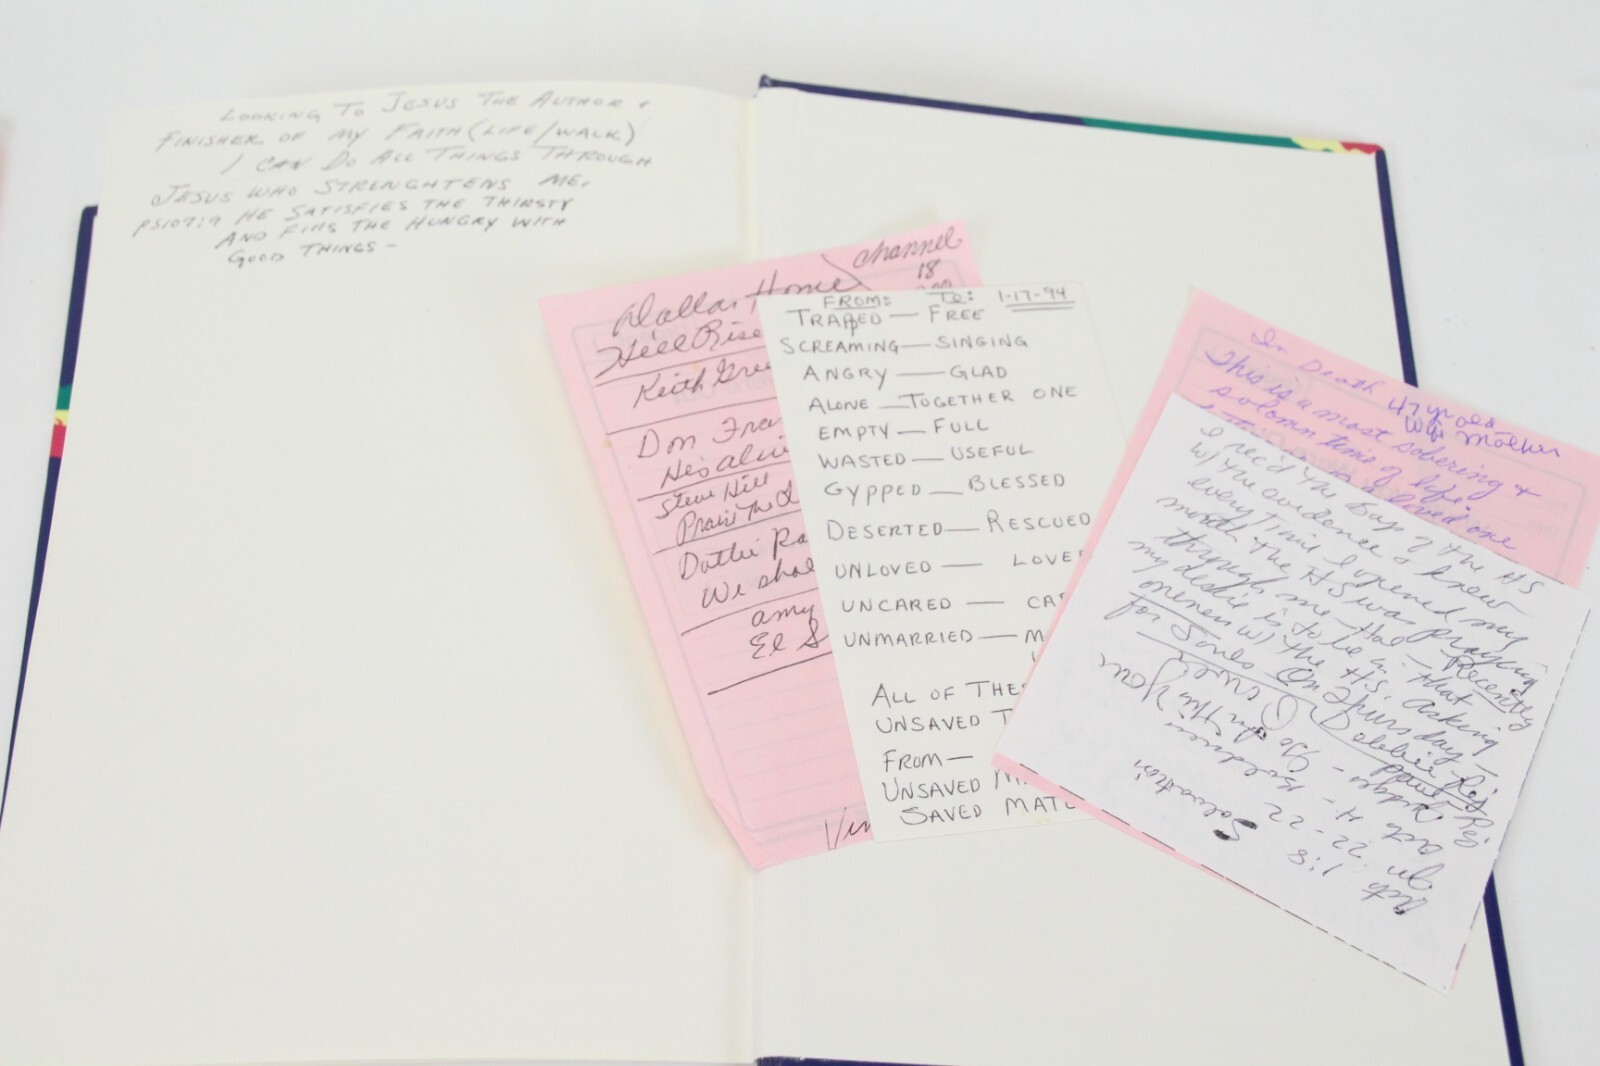 LOOKING TO JESUS THE AUTHOR &
FINISHER OF MY FAITH (LIFE/WALK)
I CAN DO ALL THINGS THROUGH
JESUS WHO STRENGHTENS ME.
PS107:9 HE SATISFIES THE THIRSTY
AND FILLS THE HUNGRY WITH
GOOD THINGS -
Channel
18
Dallas Home
Hill Rise
Keith Gree
Don Fra
He's alive
Steve Hill
Praise The L
Dottie Ra
We shal
amy
El S
Vin
FROM: TO: 1-17-94
TRAPPED — FREE
SCREAMING — SINGING
ANGRY — GLAD
ALONE — TOGETHER ONE
EMPTY — FULL
WASTED — USEFUL
GYPPED — BLESSED
DESERTED — RESCUED
UNLOVED — LOVE
UNCARED — CA
UNMARRIED — M
ALL OF THES
UNSAVED T
FROM —
UNSAVED M
SAVED MAT
In Death 47 yr old
Wife Mother
This is a most sobering &
solomn time of life.
loved one
I rec'd the Bap of the HS
w/ the evidence & knew
every time I opened my
mouth the HS was praying
through me - Hal - Recently
my desire is to be in that
oneness w/ the H.S. asking
for Jones On Thursday -
Debbie
Acts 4 - Boldness
Jn 22-22
Acts 1:8
Salvation